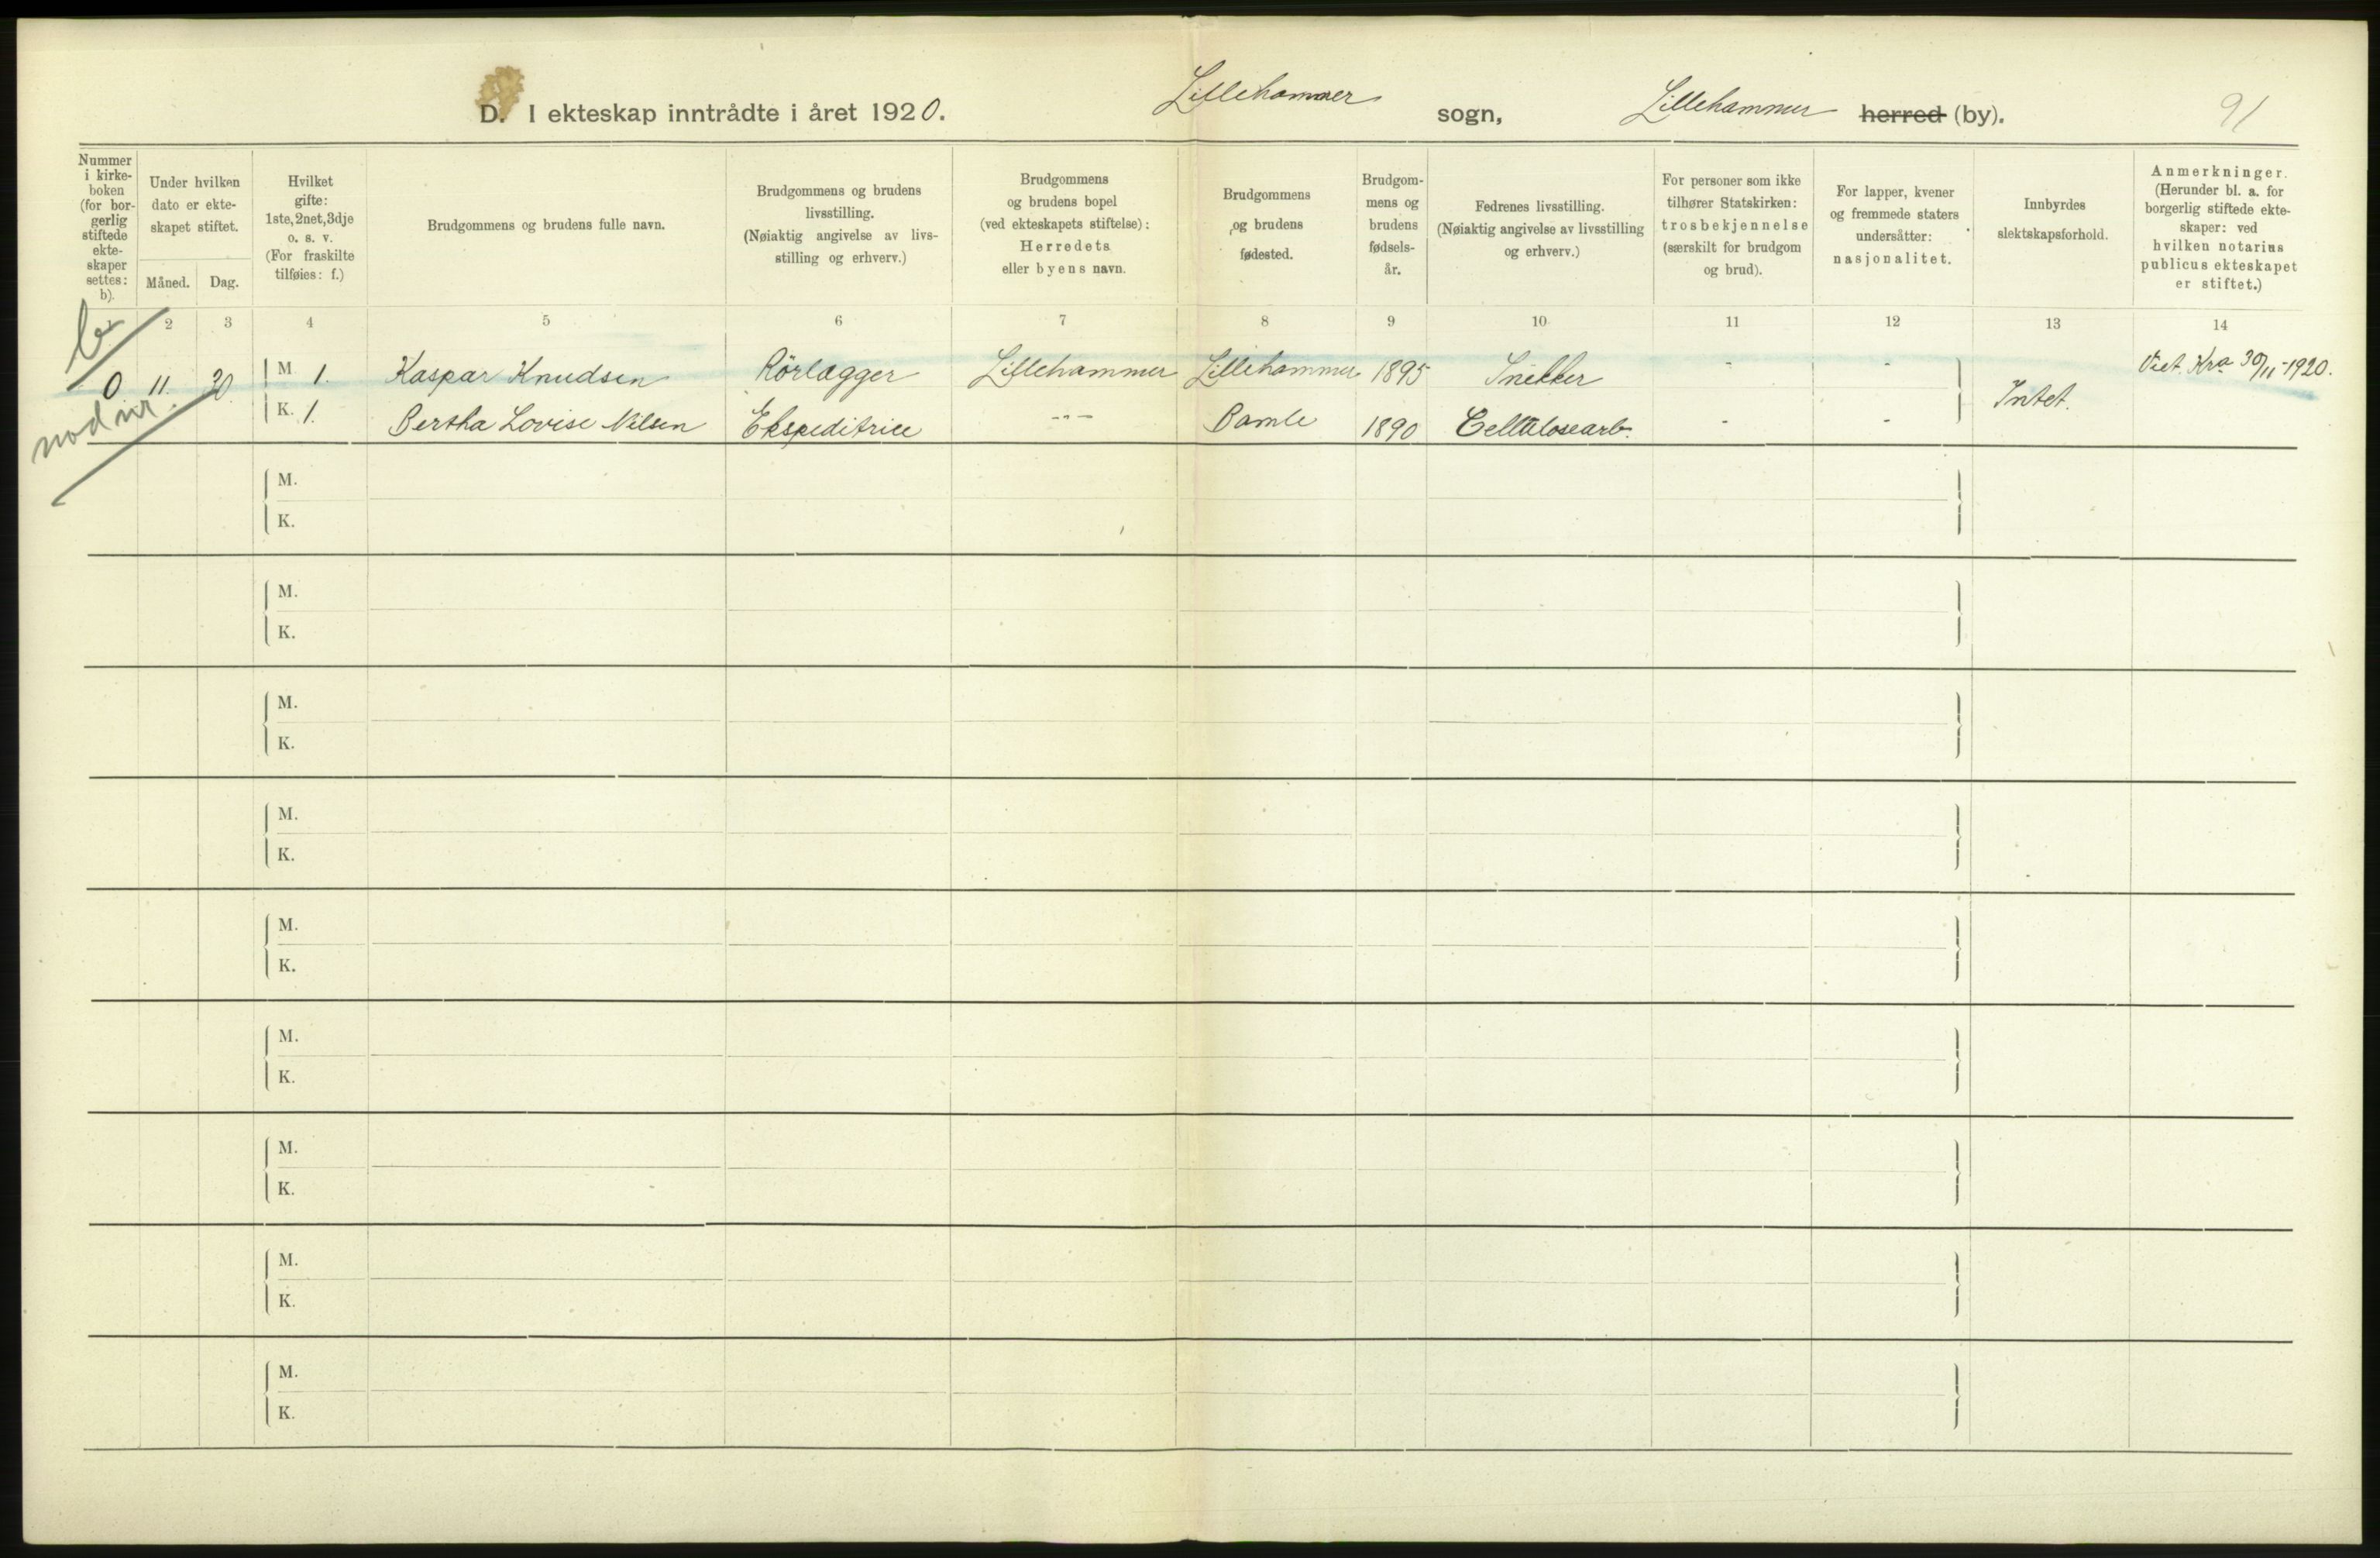 D. I ekteskap inntrådte i året 1920. Lillehammer sogn, Lillehammer herred (by). 91
Nummer
i kirke-
boken
(for bor-
gerlig
stiftede
ekte-
skaper
settes:
b).
Under hvilken
dato er ekte-
skapet stiftet.
Måned. Dag.
Hvilket
gifte:
1ste, 2net, 3dje
o. s. v.
(For fraskilte
tilføies: f.)
Brudgommens og brudens fulle navn.
Brudgommens og brudens
livsstilling.
(Nøiaktig angivelse av livs-
stilling og erhverv.)
Brudgommens
og brudens bopel
(ved ekteskapets stiftelse):
Herredets
eller byens navn.
Brudgommens
og brudens
fødested.
Brudgom-
mens og
brudens
fødsels-
år.
Fedrenes livsstilling.
(Nøiaktig angivelse av livsstilling
og erhverv.)
For personer som ikke
tilhører Statskirken:
trosbekjennelse
(særskilt for brudgom
og brud).
For lapper, kvener
og fremmede staters
undersåtter:
nasjonalitet.
Innbyrdes
slektskapsforhold.
Anmerkninger.
(Herunder bl. a. for
borgerlig stiftede ekte-
skaper: ved
hvilken notarius
publicus ekteskapet
er stiftet.)
2 3 4 5 6 7 8 9 10 11 12 13 14
b
0 11. 30. M 1. Kaspar Knudsen Rörlægger Lillehammer Lillehammer 1895 Snekker - - Intet. Viet. Kra 30/11-1920.
K. 1. Bertha Lovise Nilsen Ekspeditrice -"- Bamle 1890 Cellulosearb. - -
M.
K.
M.
K.
M.
K.
M.
K.
M.
K.
M.
K.
M.
K.
M.
K.
M.
K.